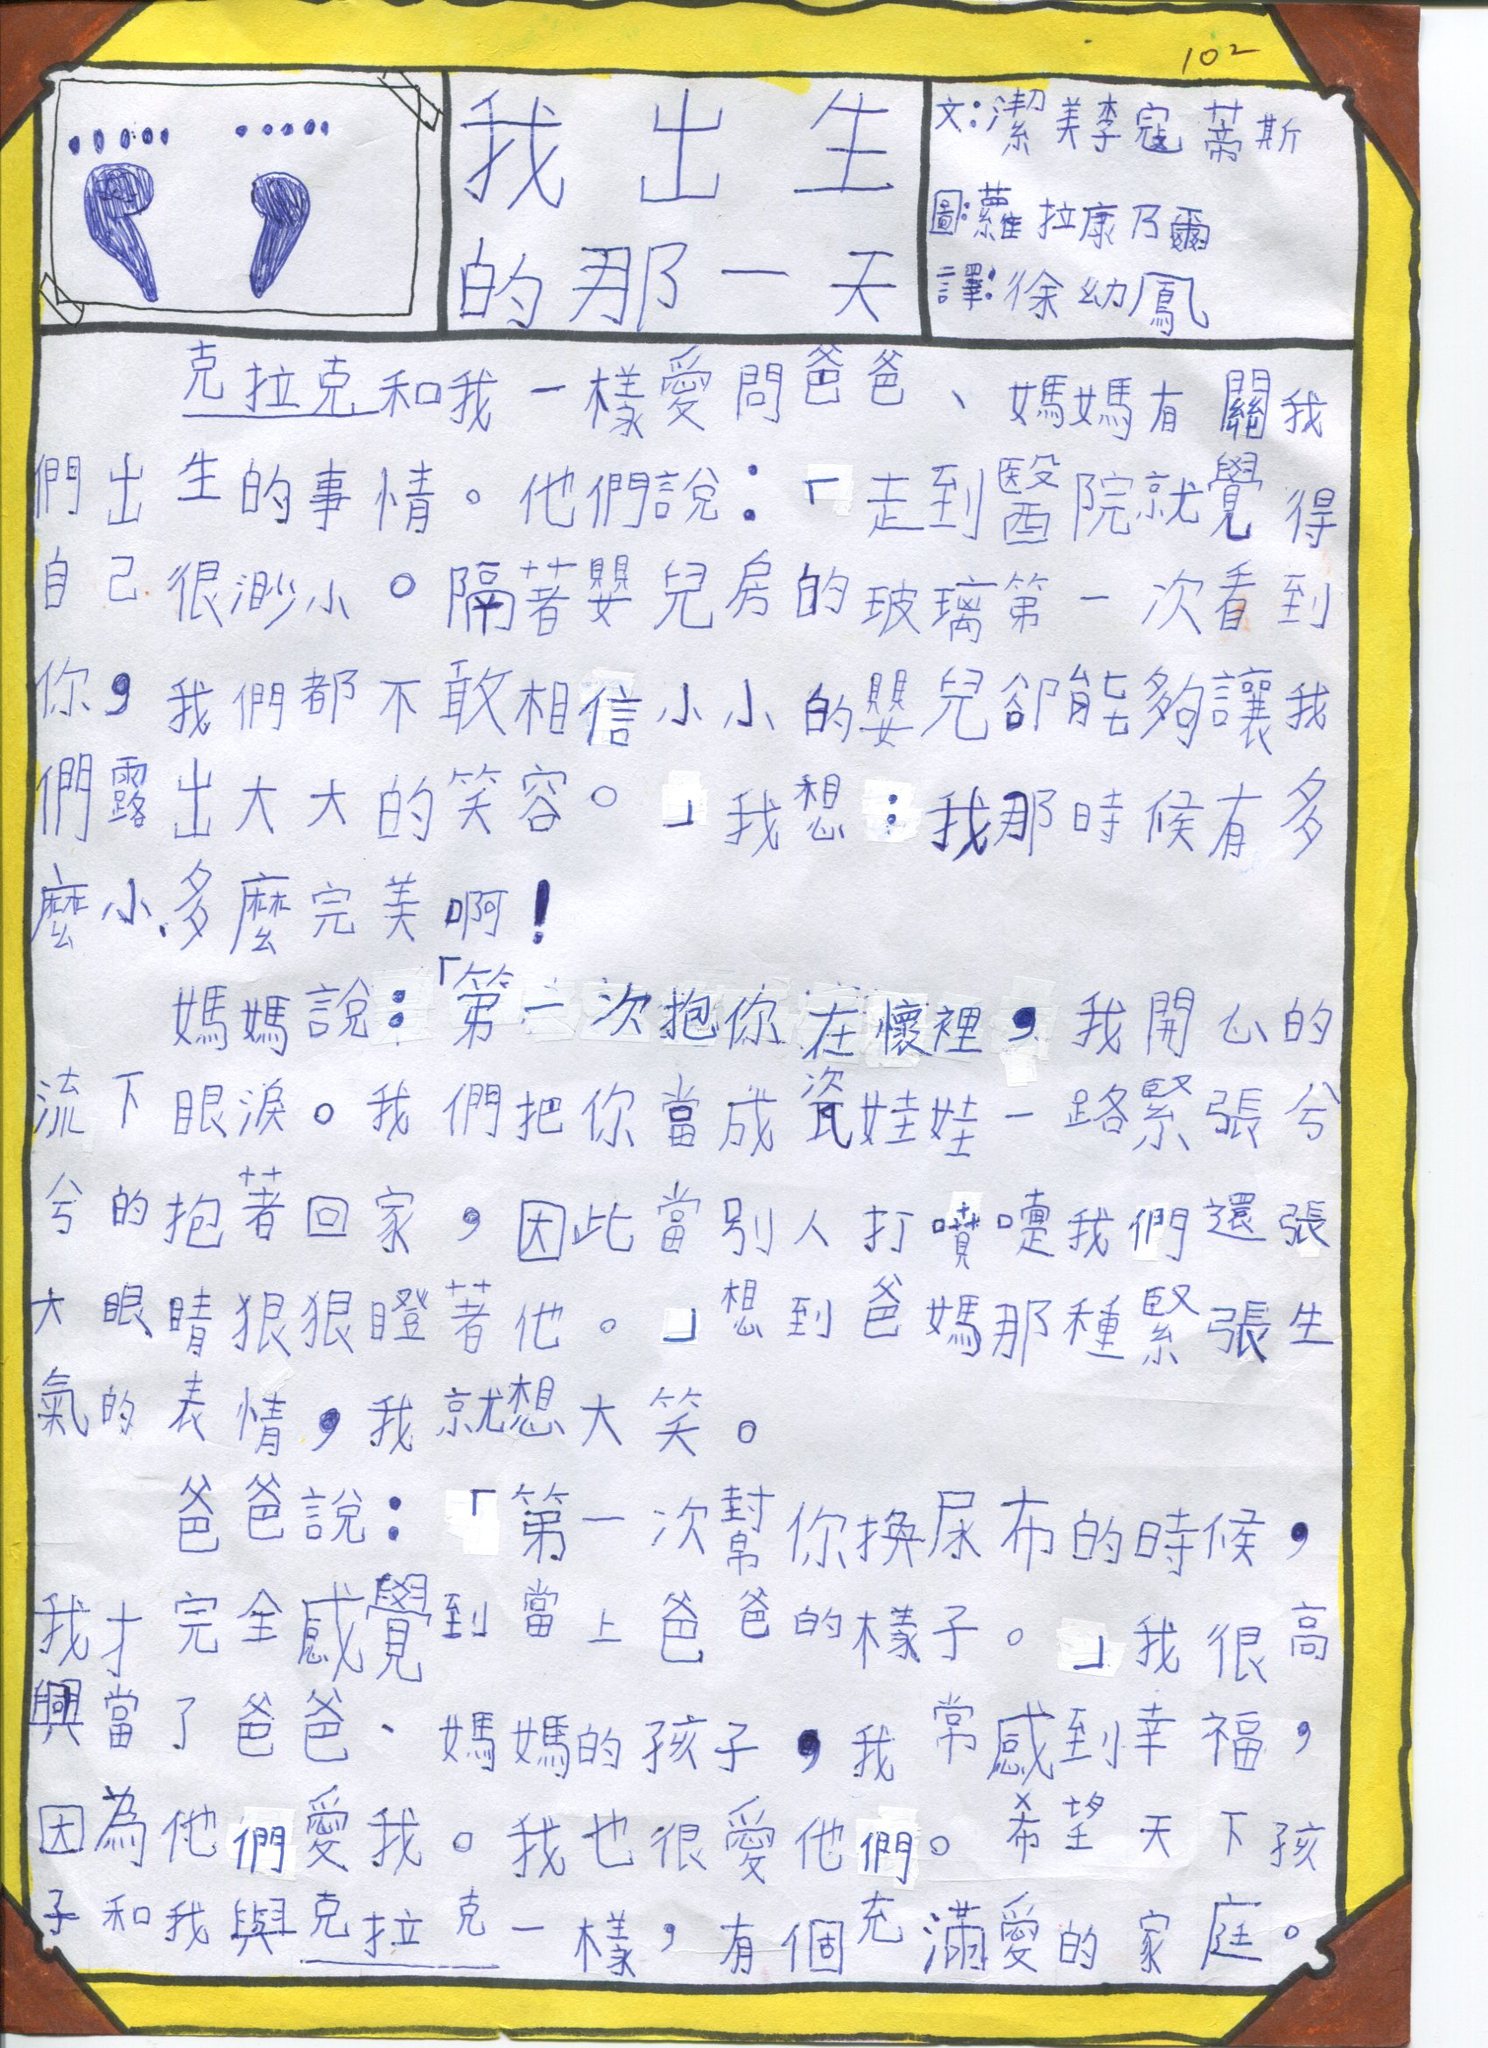 102
我出生
的那一天
文:潔美李寇蒂斯
圖:蘿拉康乃爾
譯:徐幼鳳
克拉克和我一樣愛問爸爸、媽媽有關我
們出生的事情。他們說:「走到醫院就覺得
自己很渺小。隔著嬰兒房的玻璃第一次看到
你,我們都不敢相信小小的嬰兒卻能夠讓我
們露出大大的笑容。」我想:我那時候有多
麼小、多麼完美啊!
媽媽說:「第一次抱你在懷裡,我開心的
流下眼淚。我們把你當成瓷娃娃一路緊張兮
兮的抱著回家,因此當別人打噴嚏我們還張
大眼睛狠狠瞪著他。」想到爸媽那種緊張生
氣的表情,我就想大笑。
爸爸說:「第一次幫你換尿布的時候,
我才完全感覺到當上爸爸的樣子。」我很高
興當了爸爸、媽媽的孩子,我常感到幸福,
因為他們愛我。我也很愛他們。希望天下孩
子和我與克拉克一樣,有個充滿愛的家庭。